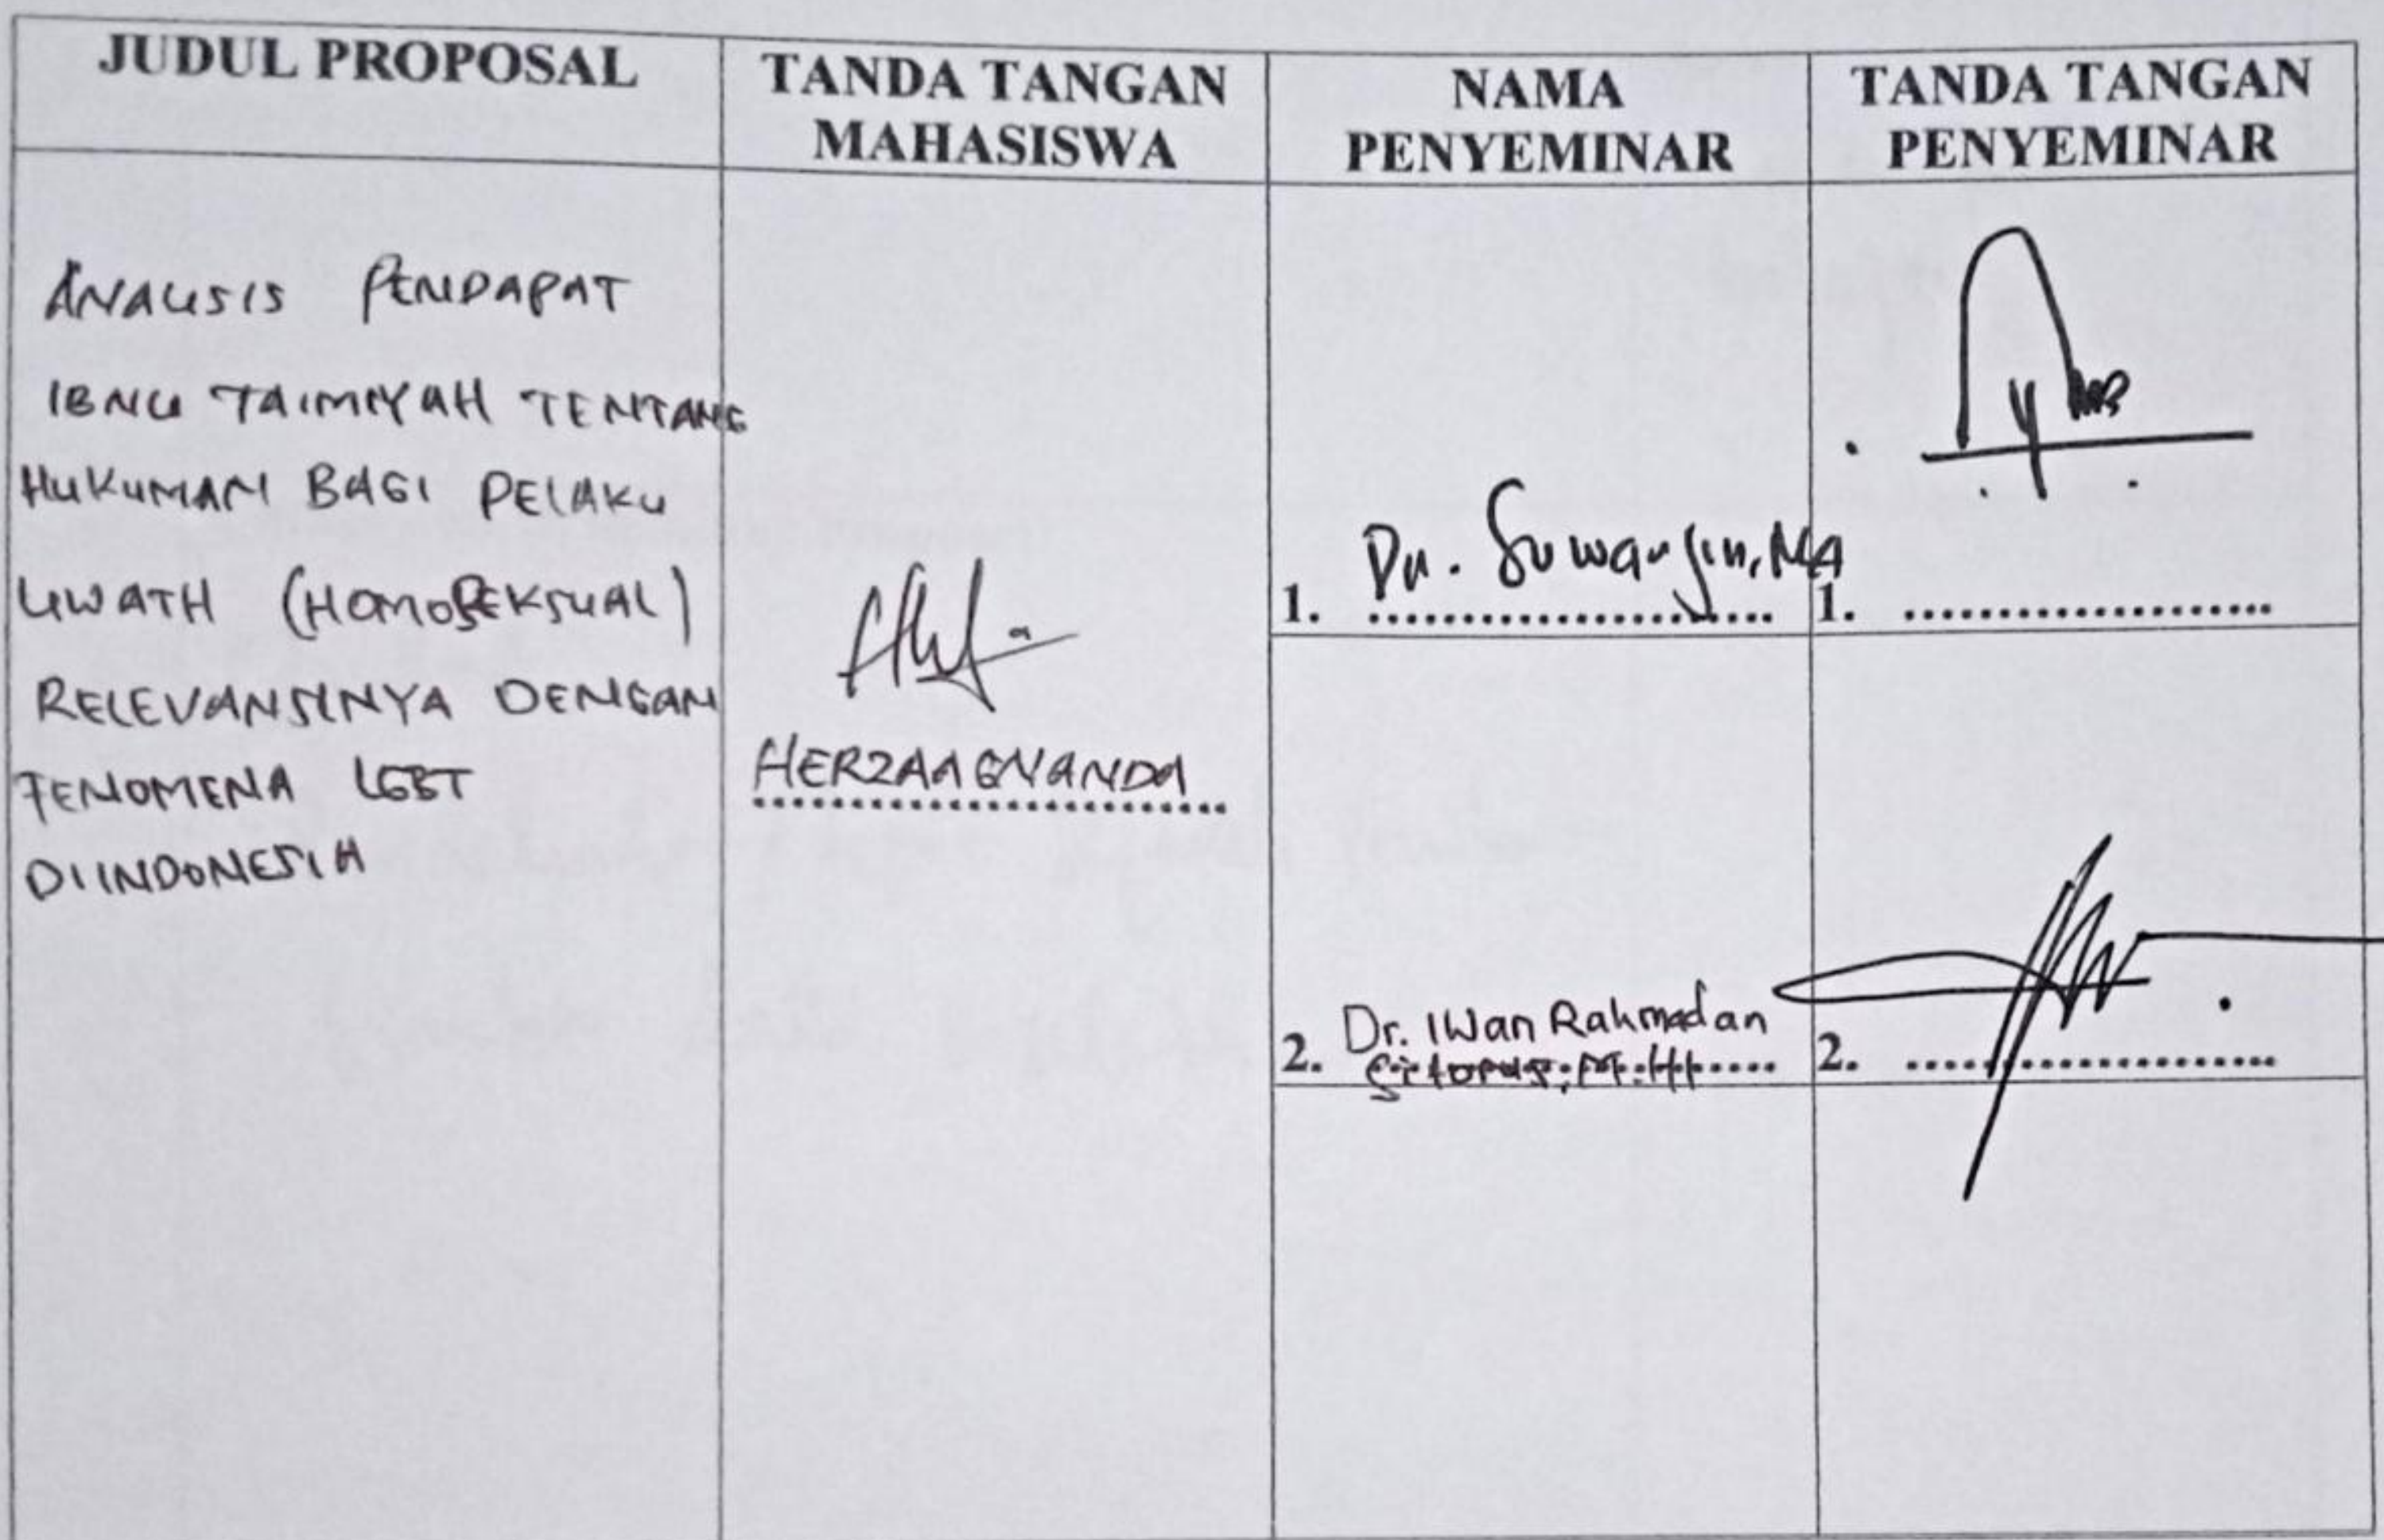 JUDUL PROPOSAL
TANDA TANGAN
MAHASISWA
NAMA
PENYEMINAR
TANDA TANGAN
PENYEMINAR
ANALISIS PENDAPAT
IBNU TAIMIYAH TENTANG
HUKUMAN BAGI PELAKU
LIWATH (HOMOSEKSUAL)
RELEVANSINYA DENGAN
FENOMENA LGBT
DIINDONESIA
HERZAAGNANDA
1. Dr. Suwarjin, MA
1. ....................
2. Dr. Iwan Rahmadan
Sitorus, M.HI
2. ....................